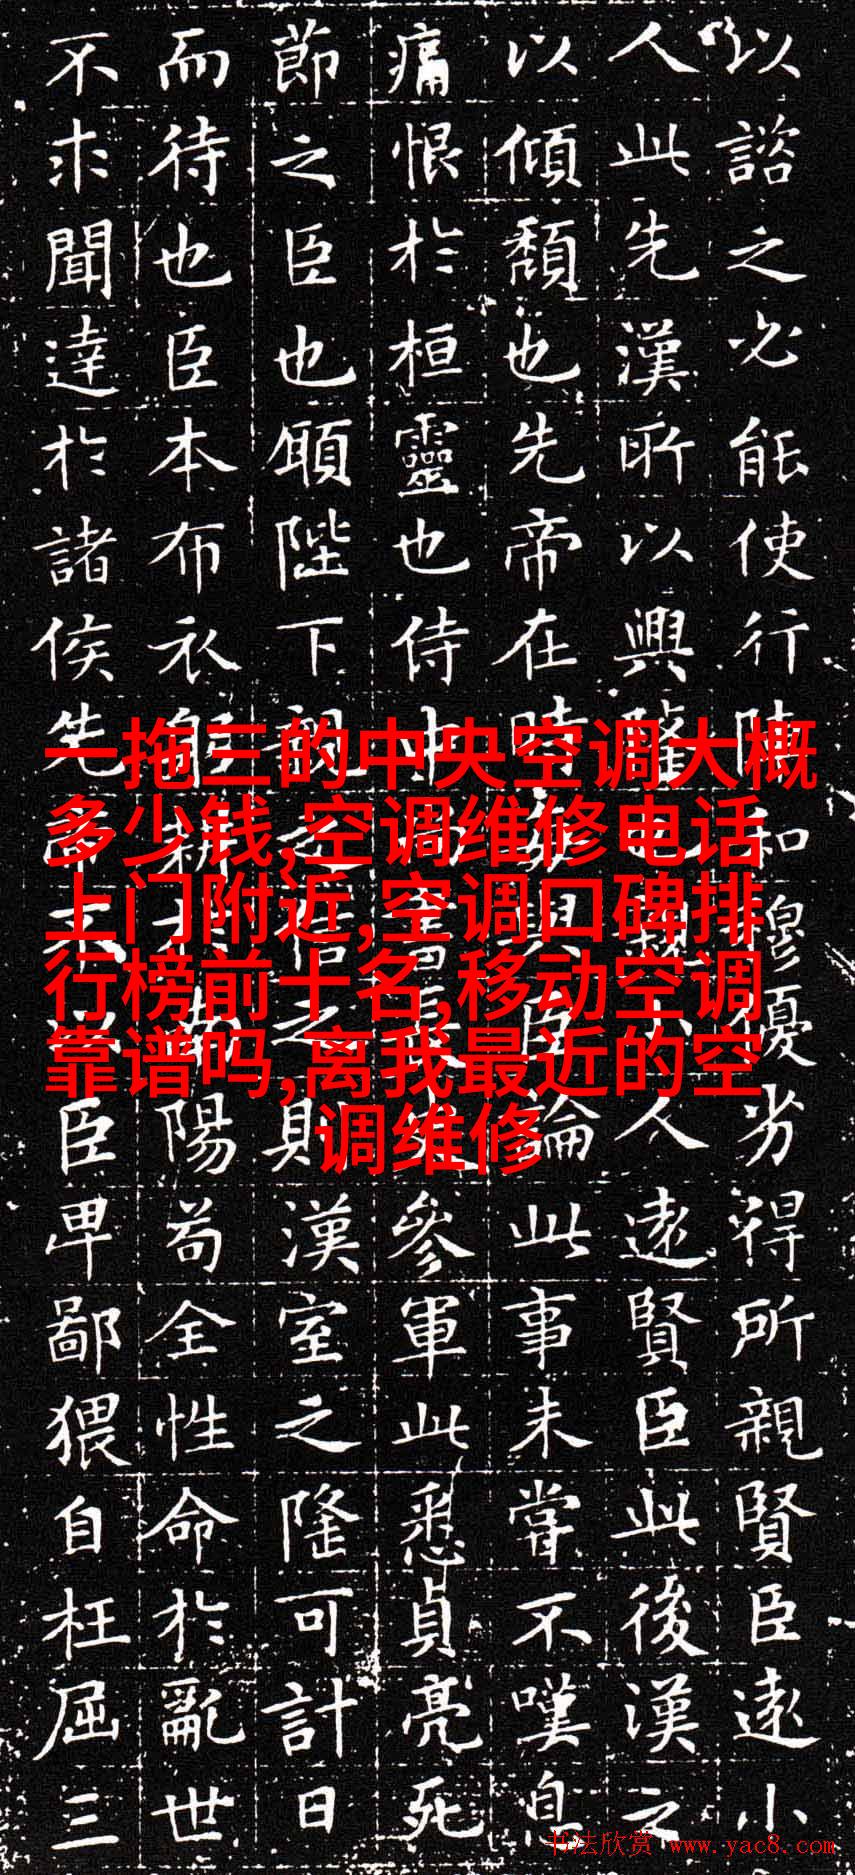 以諮之必能使行陣和穆優劣得所親賢臣遠小
人此先漢所以興隆也親小人遠賢臣此後漢之
以傾頹也先帝在時每與臣論此事未嘗不嘆息
痛恨於桓靈也侍中尚書長史參軍此悉貞亮死
節之臣也願陛下親之信之則漢室之隆可計日
而待也臣本布衣躬耕於南陽苟全性命於亂世
不求聞達於諸侯先帝不以臣卑鄙猥自枉屈三
一拖三的中央空调大概
多少钱,空调维修电话
上门附近,空调口碑排
行榜前十名,移动空调
靠谱吗,离我最近的空
调维修
书法欣赏 www.yac8.com